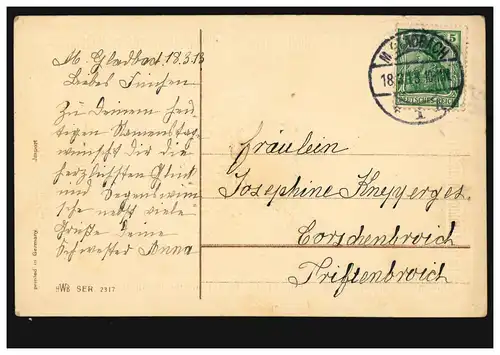 M. Gladbach 18.3.13
Liebes Finchen
Zu Deinem heu-
tigen Namenstag
wünscht Dir die
herzlichsten Glück
und Segenswün-
sche nebst viele
Grüße Deine
Schwester Anna
Fräulein
Josephine Knepperges
Corschenbroich
Triftenbroich
M. GLADBACH
18.3.13
1
5
DEUTSCHES REICH
Import
printed in Germany.
SER. 7317